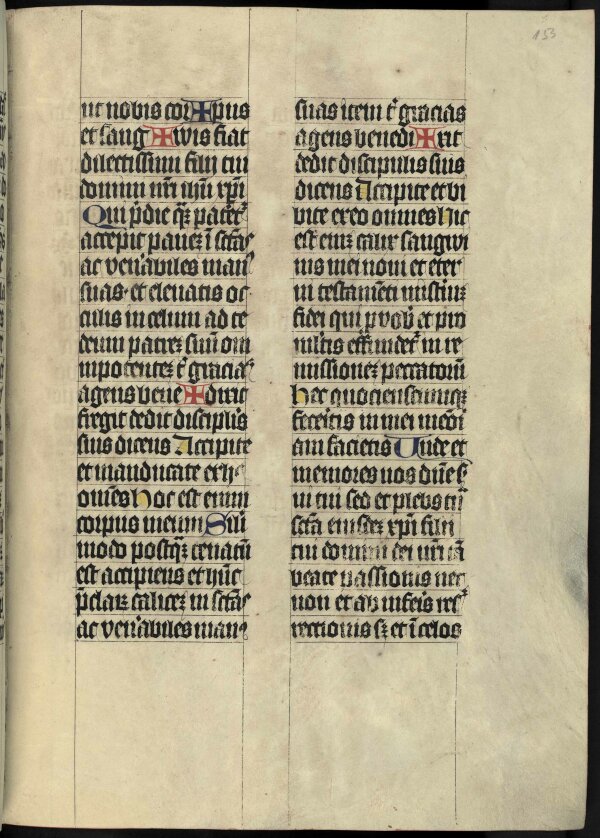 153
ut nobis cor✠pus
et sang✠wis fiat
dilectissimi filij tui
domini nr̄i ihū xp̄i
Qui p̄die qȝ patet̄
accepit paneȝ ī sctās
ac ven̄abiles man9
suas et eleuatis oc
culis in celum ad te
deum patreȝ suū om
nipotenteȝ t̄ gracias
agens bene✠dixit
fregit dedit disciplis
suis dicens Accipite
et manducate ex h̄
om̄es hoc est enim
corpus meum Simi
modo postqȝ cenatū
est accipiens et hūc
p̄claȝ caliceȝ in sctās
ac ven̄abiles man9
suas item t̄ gracias
agens benedi✠xit
dedit discipulis suis
dicens Accipite et bi
bite ex eo omnes hic
est eniȝ calix sangwi
nis mei noui et eter
ni testamēti misteriū
fidei qui p vob̄ et pro
multis effundet̄ in re
missioneȝ peccatorū
hec quociescumqȝ
feceritis in mei memo
am facietis Unde et
memores nos dn̄e s
ui tui sed et plebs tū
sctā eiusdeȝ xp̄i filij
tui domini dei nr̄i tā
beate passionis nec
non et ab inferis res
rectionis sȝ et ī celos